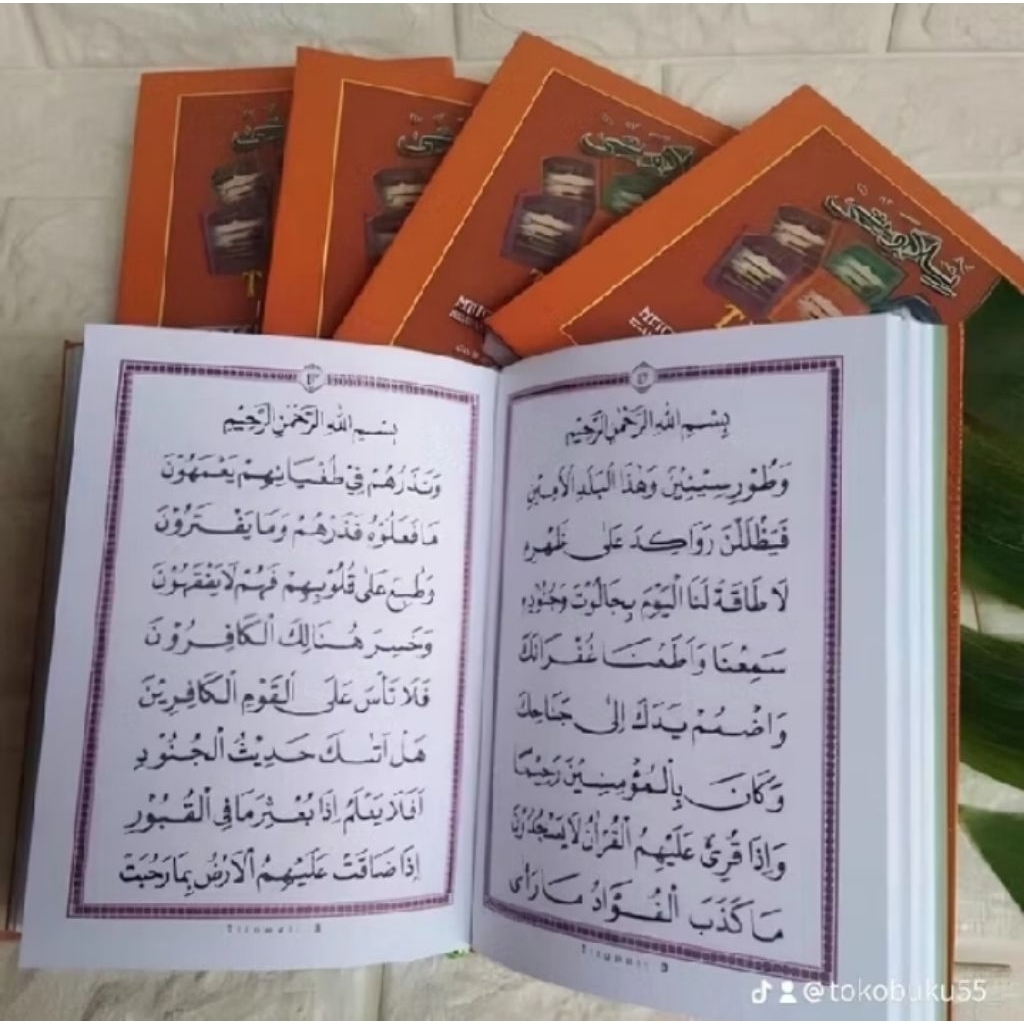 بِسْمِ اللهِ الرَّحْمٰنِ الرَّحِيْمِ
وَطُوْرِ سِيْنِيْنَ وَهٰذَا الْبَلَدِ الْاَمِيْنِ
فَيَظْلَلْنَ رَوَاكِدَ عَلٰى ظَهْرِهِ
لَا طَاقَةَ لَنَا الْيَوْمَ بِجَالُوْتَ وَجُنُوْدِهِ
سَمِعْنَا وَاَطَعْنَا غُفْرَانَكَ
وَاضْمُمْ يَدَكَ اِلٰى جَنَاحِكَ
وَكَانَ بِالْمُؤْمِنِيْنَ رَحِيْمًا
وَاِذَا قُرِئَ عَلَيْهِمُ الْقُرْاٰنُ لَا يَسْجُدُوْنَ
مَا كَذَبَ الْفُؤَادُ مَا رَاٰى
Tilawati 3
بِسْمِ اللهِ الرَّحْمٰنِ الرَّحِيْمِ
وَنَذَرُهُمْ فِيْ طُغْيَانِهِمْ يَعْمَهُوْنَ
مَا فَعَلُوْهُ فَذَرْهُمْ وَمَا يَفْتَرُوْنَ
وَطُبِعَ عَلٰى قُلُوْبِهِمْ فَهُمْ لَا يَفْقَهُوْنَ
وَخَسِرَ هُنَالِكَ الْكَافِرُوْنَ
فَلَا تَأْسَ عَلَى الْقَوْمِ الْكَافِرِيْنَ
هَلْ اَتٰىكَ حَدِيْثُ الْجُنُوْدِ
اَفَلَا يَعْلَمُ اِذَا بُعْثِرَ مَا فِى الْقُبُوْرِ
اِذَا ضَاقَتْ عَلَيْهِمُ الْاَرْضُ بِمَا رَحُبَتْ
Tilawati 3
@tokobuku55